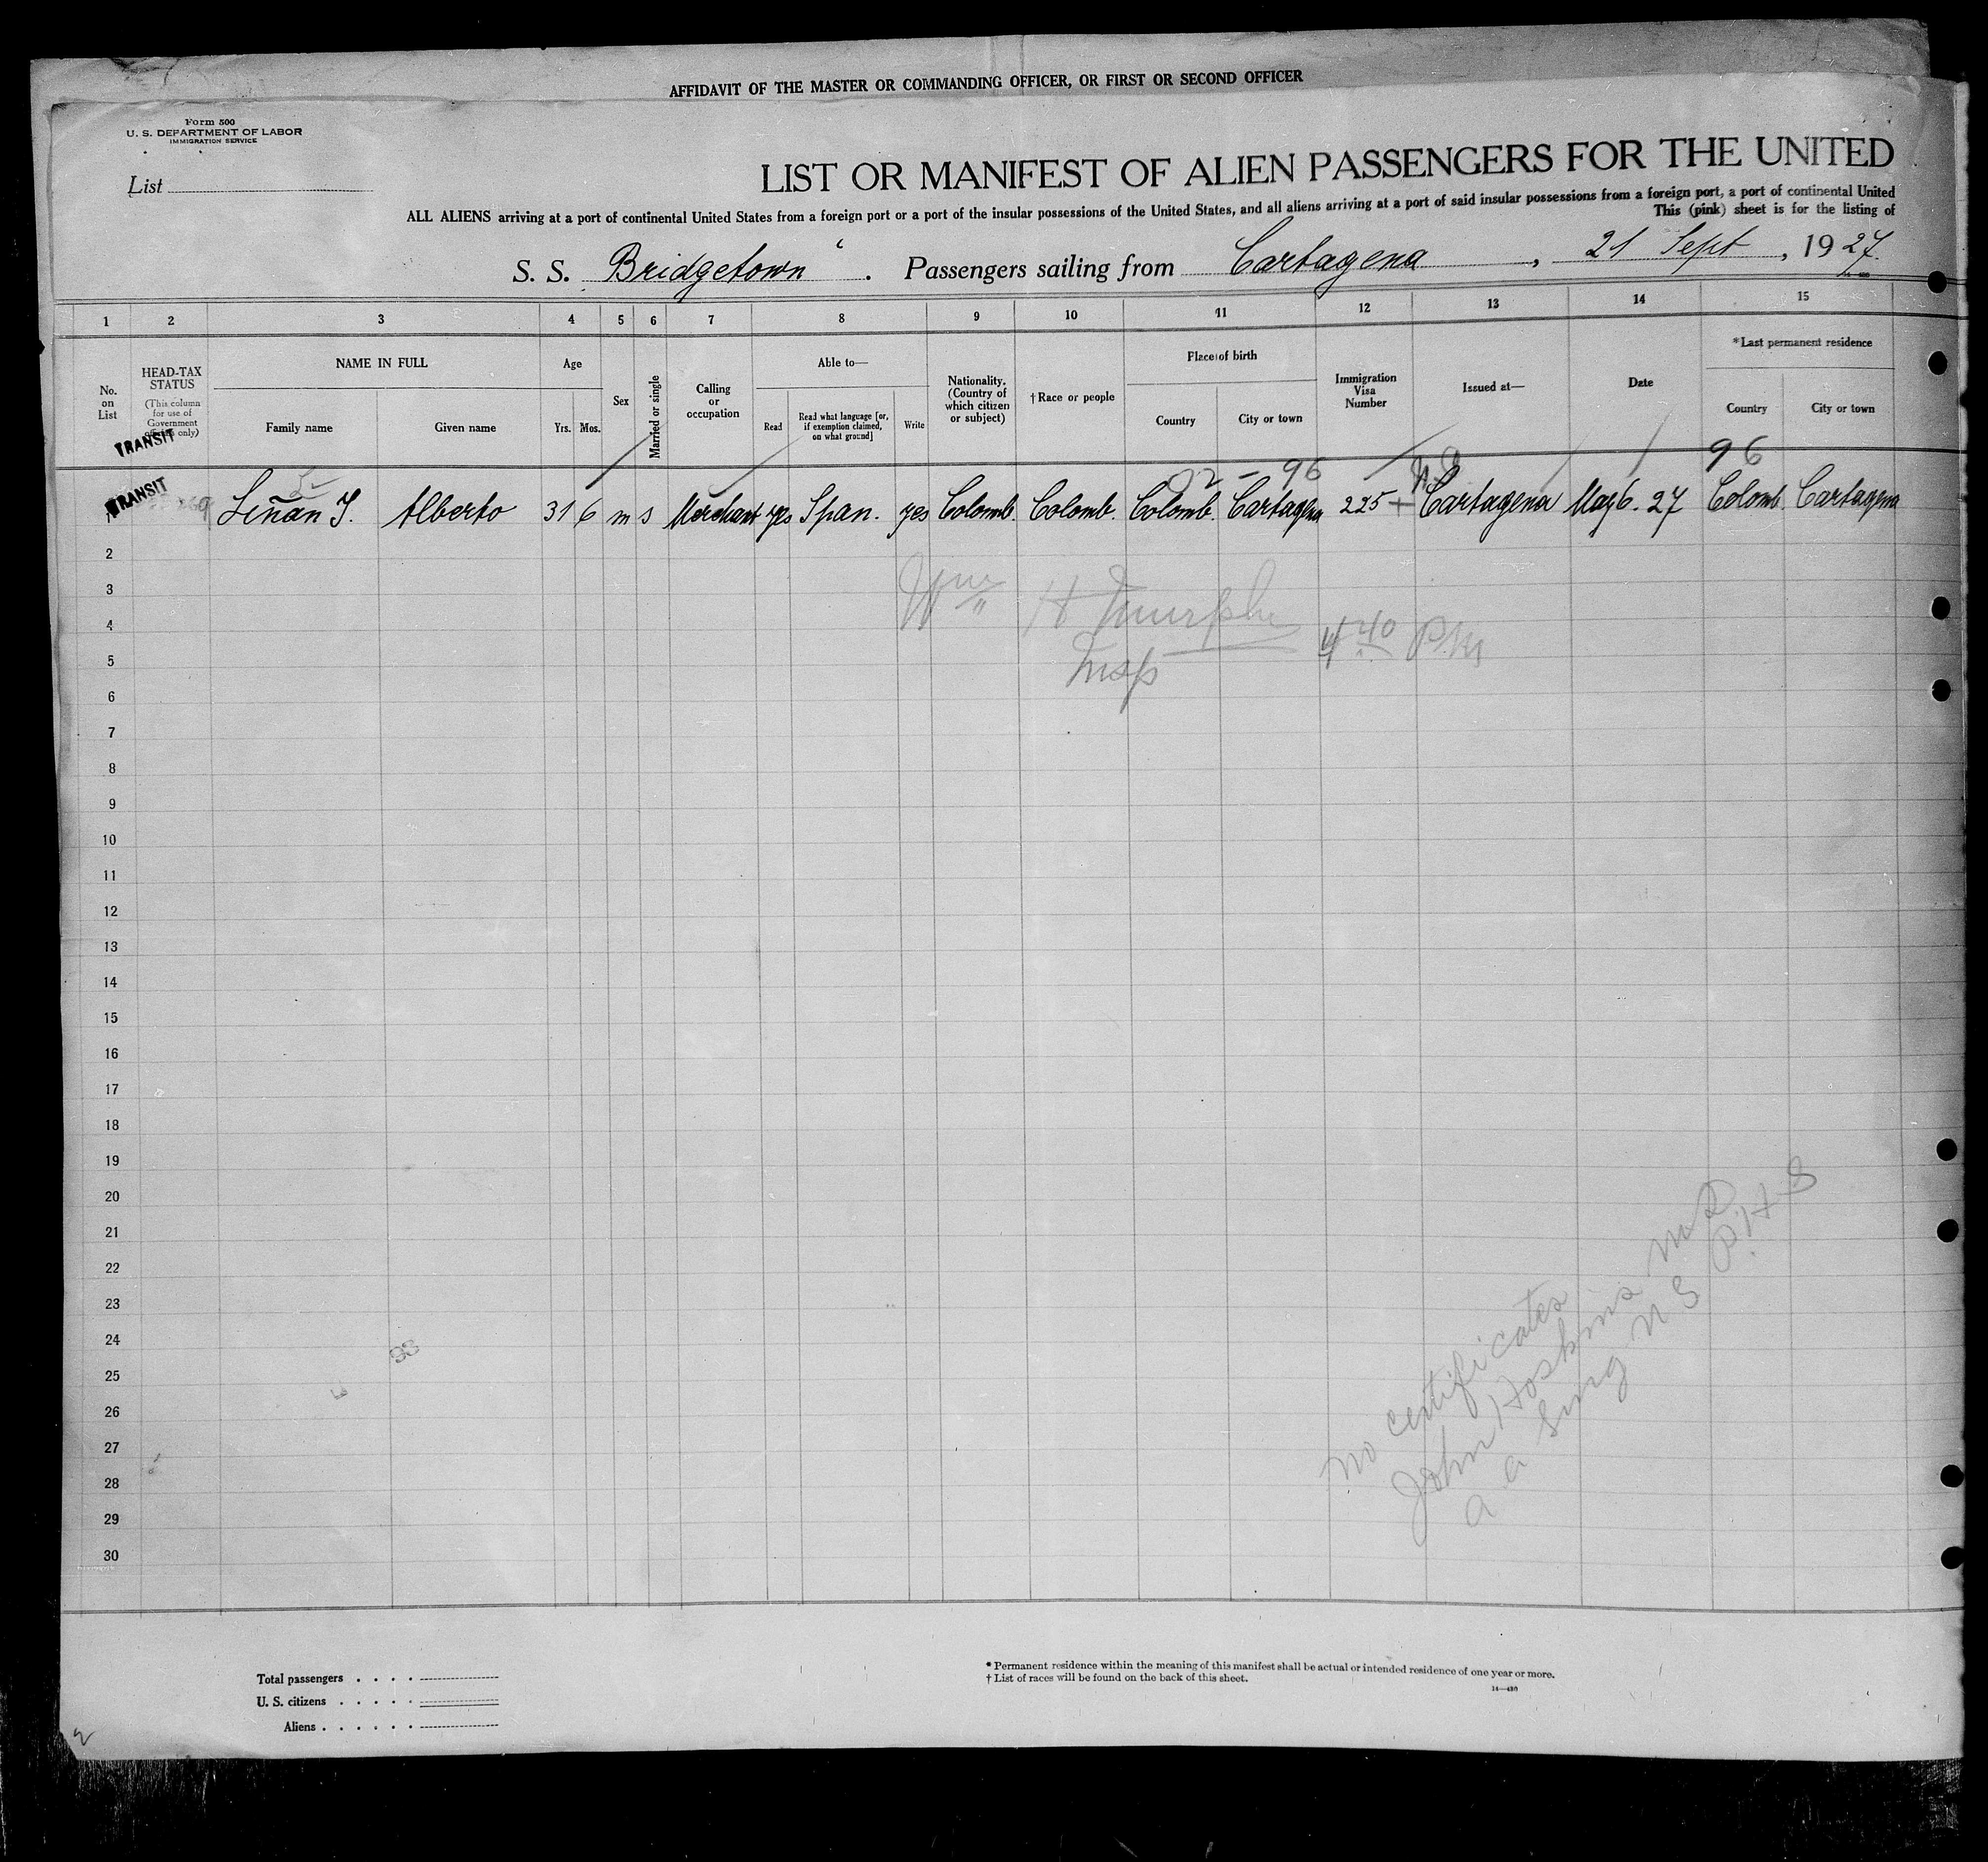 AFFIDAVIT OF THE MASTER OR COMMANDING OFFICER, OR FIRST OR SECOND OFFICER
Form 500
U. S. DEPARTMENT OF LABOR
IMMIGRATION SERVICE
List
LIST OR MANIFEST OF ALIEN PASSENGERS FOR THE UNITED
ALL ALIENS arriving at a port of continental United States from a foreign port or a port of the insular possessions of the United States, and all aliens arriving at a port of said insular possessions from a foreign port, a port of continental United
This (pink) sheet is for the listing of
S. S. Bridgetown . Passengers sailing from Cartagena , 21 Sept , 1927
1 2 3 4 5 6 7 8 9 10 11 12 13 14 15
No. on List
HEAD-TAX STATUS
(This column for use of Government officials only)
NAME IN FULL
Family name
Given name
Age
Yrs.
Mos.
Sex
Married or single
Calling or occupation
Able to—
Read
Read what language [or, if exemption claimed, on what ground]
Write
Nationality. (Country of which citizen or subject)
† Race or people
Place of birth
Country
City or town
Immigration Visa Number
Issued at—
Date
*Last permanent residence
Country
City or town
TRANSIT
02 - 96
96
TRANSIT
Alberto 31 6 m s Merchant yes Span. yes Colomb. Colomb. Colomb. Cartagena 225 Cartagena May 6. 27 Colomb. Cartagena
2
3
Wm H Murphy
4
440 PM
5
Insp
6
7
8
9
10
11
12
13
14
15
16
17
18
19
20
21
22
23
24
25
26
27
28
29
30
93
no certificates
John Hoskins MD
a a Surg U S P.H.S
Total passengers
U. S. citizens
Aliens
* Permanent residence within the meaning of this manifest shall be actual or intended residence of one year or more.
† List of races will be found on the back of this sheet.
14—430
2